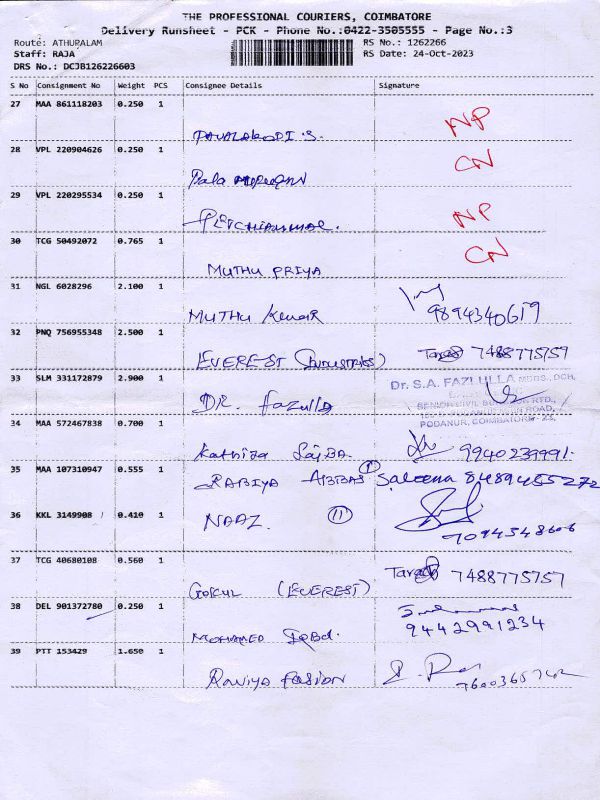 THE PROFESSIONAL COURIERS, COIMBATORE
Delivery Runsheet - PCK - Phone No.:0422-3505555 - Page No.:3
Route: ATHUPALAM RS No.: 1262266
Staff: RAJA RS Date: 24-Oct-2023
DRS No.: DCJB126226603
S No Consignment No Weight PCS Consignee Details Signature
27 MAA 861118203 0.250 1
PAVALAKODI .S. NP
28 VPL 220904626 0.250 1
Bala Murugan CN
29 VPL 220295534 0.250 1
PETCHIAMMAL. NP
30 TCG 50492072 0.765 1
MUTHU PRIYA CN
31 NGL 6028296 2.100 1
MUTHU Kumar 9894340619
32 PNQ 756955348 2.500 1
EVEREST (INDUSTRIES) 7488775759
33 SLM 331172879 2.900 1
DR. Fazulla Dr. S.A. FAZLULLA MBBS., DCH,
PODANUR, COIMBATORE - 23.
34 MAA 572467838 0.700 1
Kathija 9940239991.
35 MAA 107310947 0.555 1
RABIYA ABBAS Saleena 8489455272
36 KKL 3149908 0.410 1
NAAZ. 11 7094548606
37 TCG 40680108 0.560 1
GOKUL (EVEREST) 7488775757
38 DEL 901372780 0.250 1
MOHAMED Iqbal. 9442991234
39 PTT 153429 1.650 1
Raniya Fasion